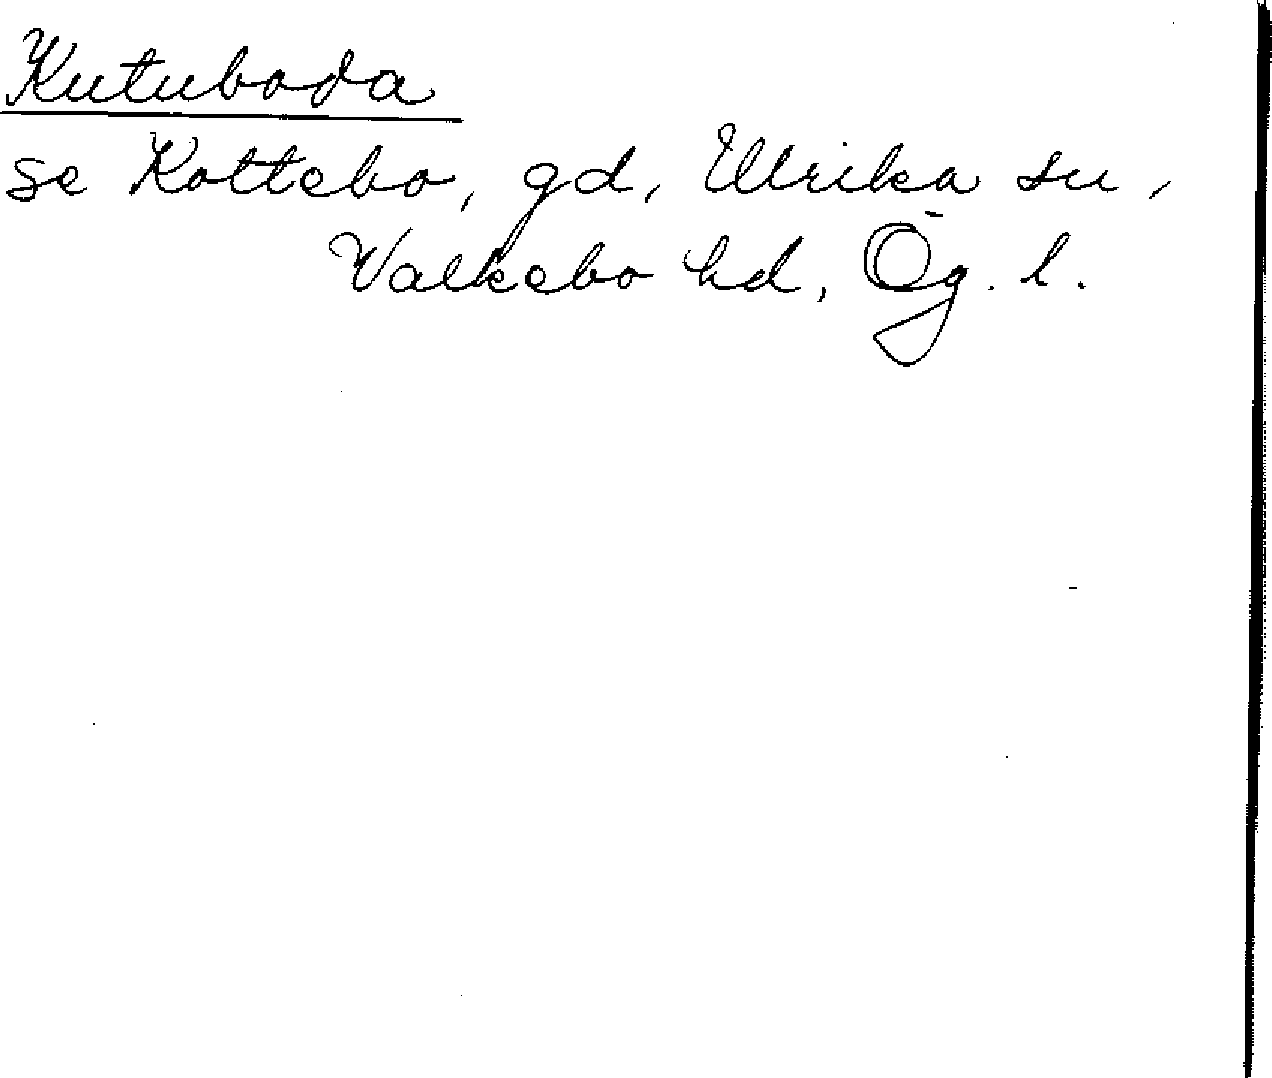 Kutuboda
se Kottebo, gd, Ulrika sn,
Valkebo hd, Ög. l.